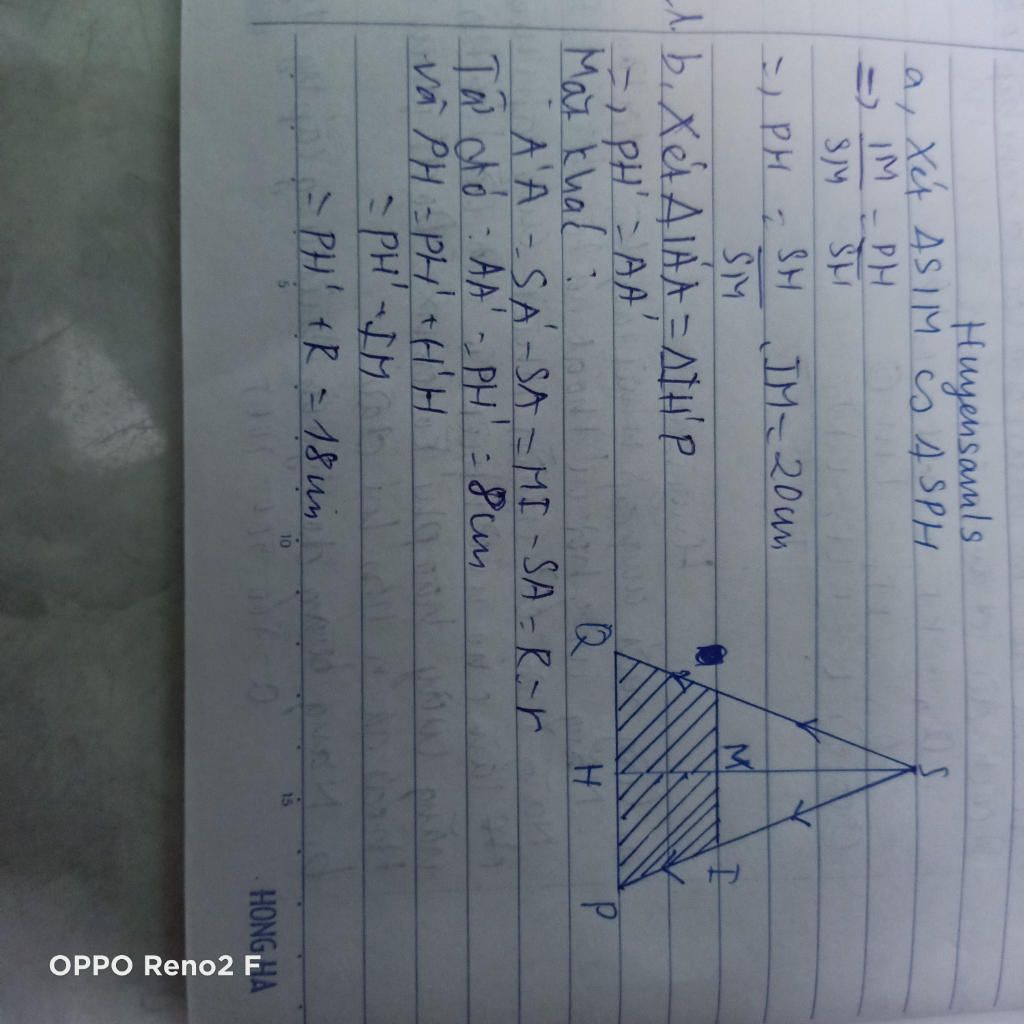 Huyensamls
a, Xét ΔSIM ∽ ΔSPH
=> IM/SM = PH/SH
=> PH = SH/SM . IM = 20cm
b, Xét ΔIA'A = ΔIH'P
=> PH' = AA'
Mặt khác :
A'A = SA' - SA = MI - SA = R - r
Từ đó : AA' = PH' = 8cm
và PH = PH' + H'H
= PH' + IM
= PH' + R = 18cm
S
M
I
Q
H
P
5
10
15
HONG HA
OPPO Reno2 F